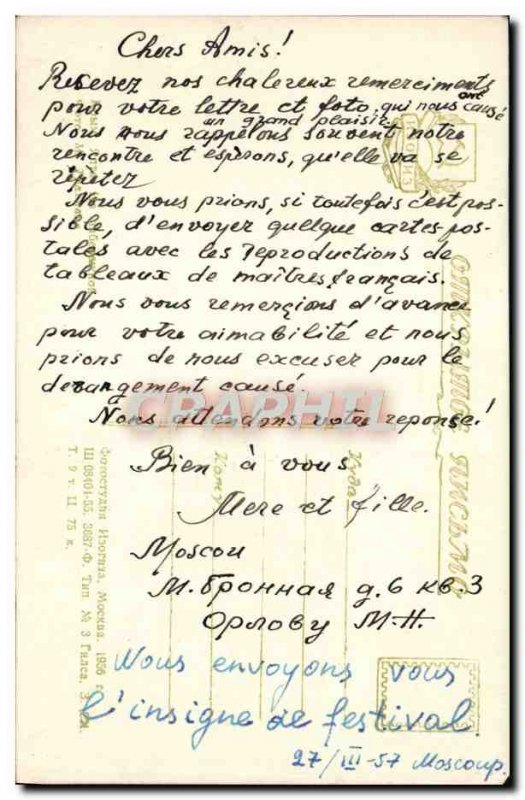 Chers Amis!
Recevez nos chalereux remerciments
pour votre lettre et foto, qui nous ont causé
un grand plaisir
Nous vous rappelons souvent notre
rencontre et espérons, qu'elle va se
répétez
Nous vous prions, si toutefois c'est pos-
sible, d'envoyer quelque cartes-pos-
tales avec les reproductions de
tableaux de maîtres français.
Nous vous remerçions d'avance
pour votre aimabilité et nous
prions de nous excuser pour le
derangement causé.
Nous attendons votre reponse!
Bien à vous
Mere et fille.
Moscou
М. Бронная д. 6 кв 3
Орлову М-Н.
Nous envoyons vous
l'insigne de festival.
27/III-57 Moscoup.
ОТКРЫТОЕ ПИСЬМО
ИЗОГИЗ
Куда
Кому
Фотостудия Изогиза, Москва, 1956 г.
Ш 08401-55. 3687-Ф. Тип № 3 Гиза.
Т. 9 т. II 75 к.
CRAPHTI